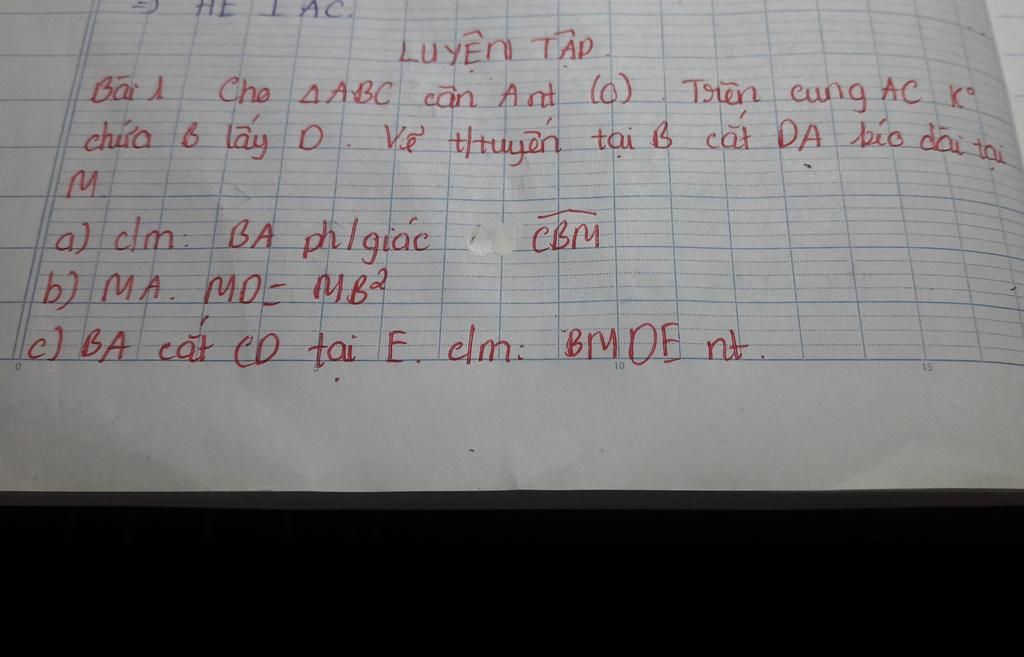 =) HE ⊥ AC.
LUYỆN TẬP.
Bài 1 Cho ΔABC cân A nt (O). Trên cung AC k°
chứa B lấy D. Vẽ t/tuyến tại B cắt DA kéo dài tại
M
a) c/m: BA ph/giác \widehat{CBM}
b) MA. MD = MB²
c) BA cắt CD tại E. c/m: BMDE nt.
0 10 15